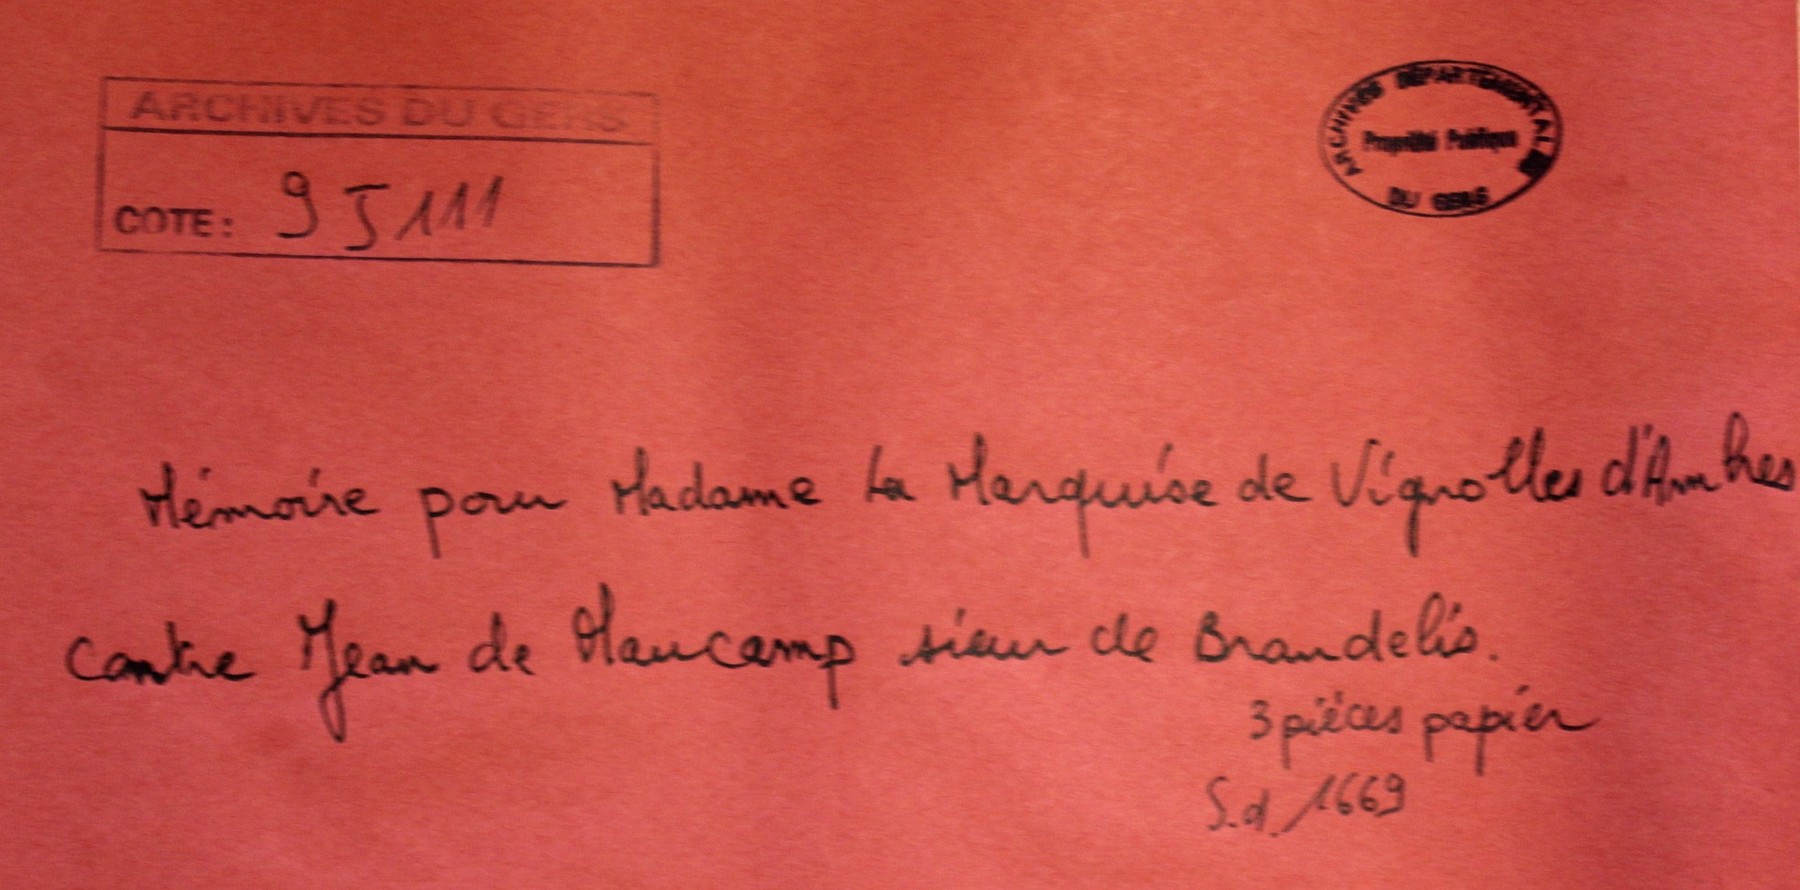 ARCHIVES DU GERS
COTE: 9 J 111
ARCHIVES DÉPARTEMENTALES
Propriété Publique
DU GERS
Mémoire pour Madame La Marquise de Vignolles d'Ambres
contre Jean de Maucamp sieur de Brandelis.
3 pièces papier
S.d. 1669